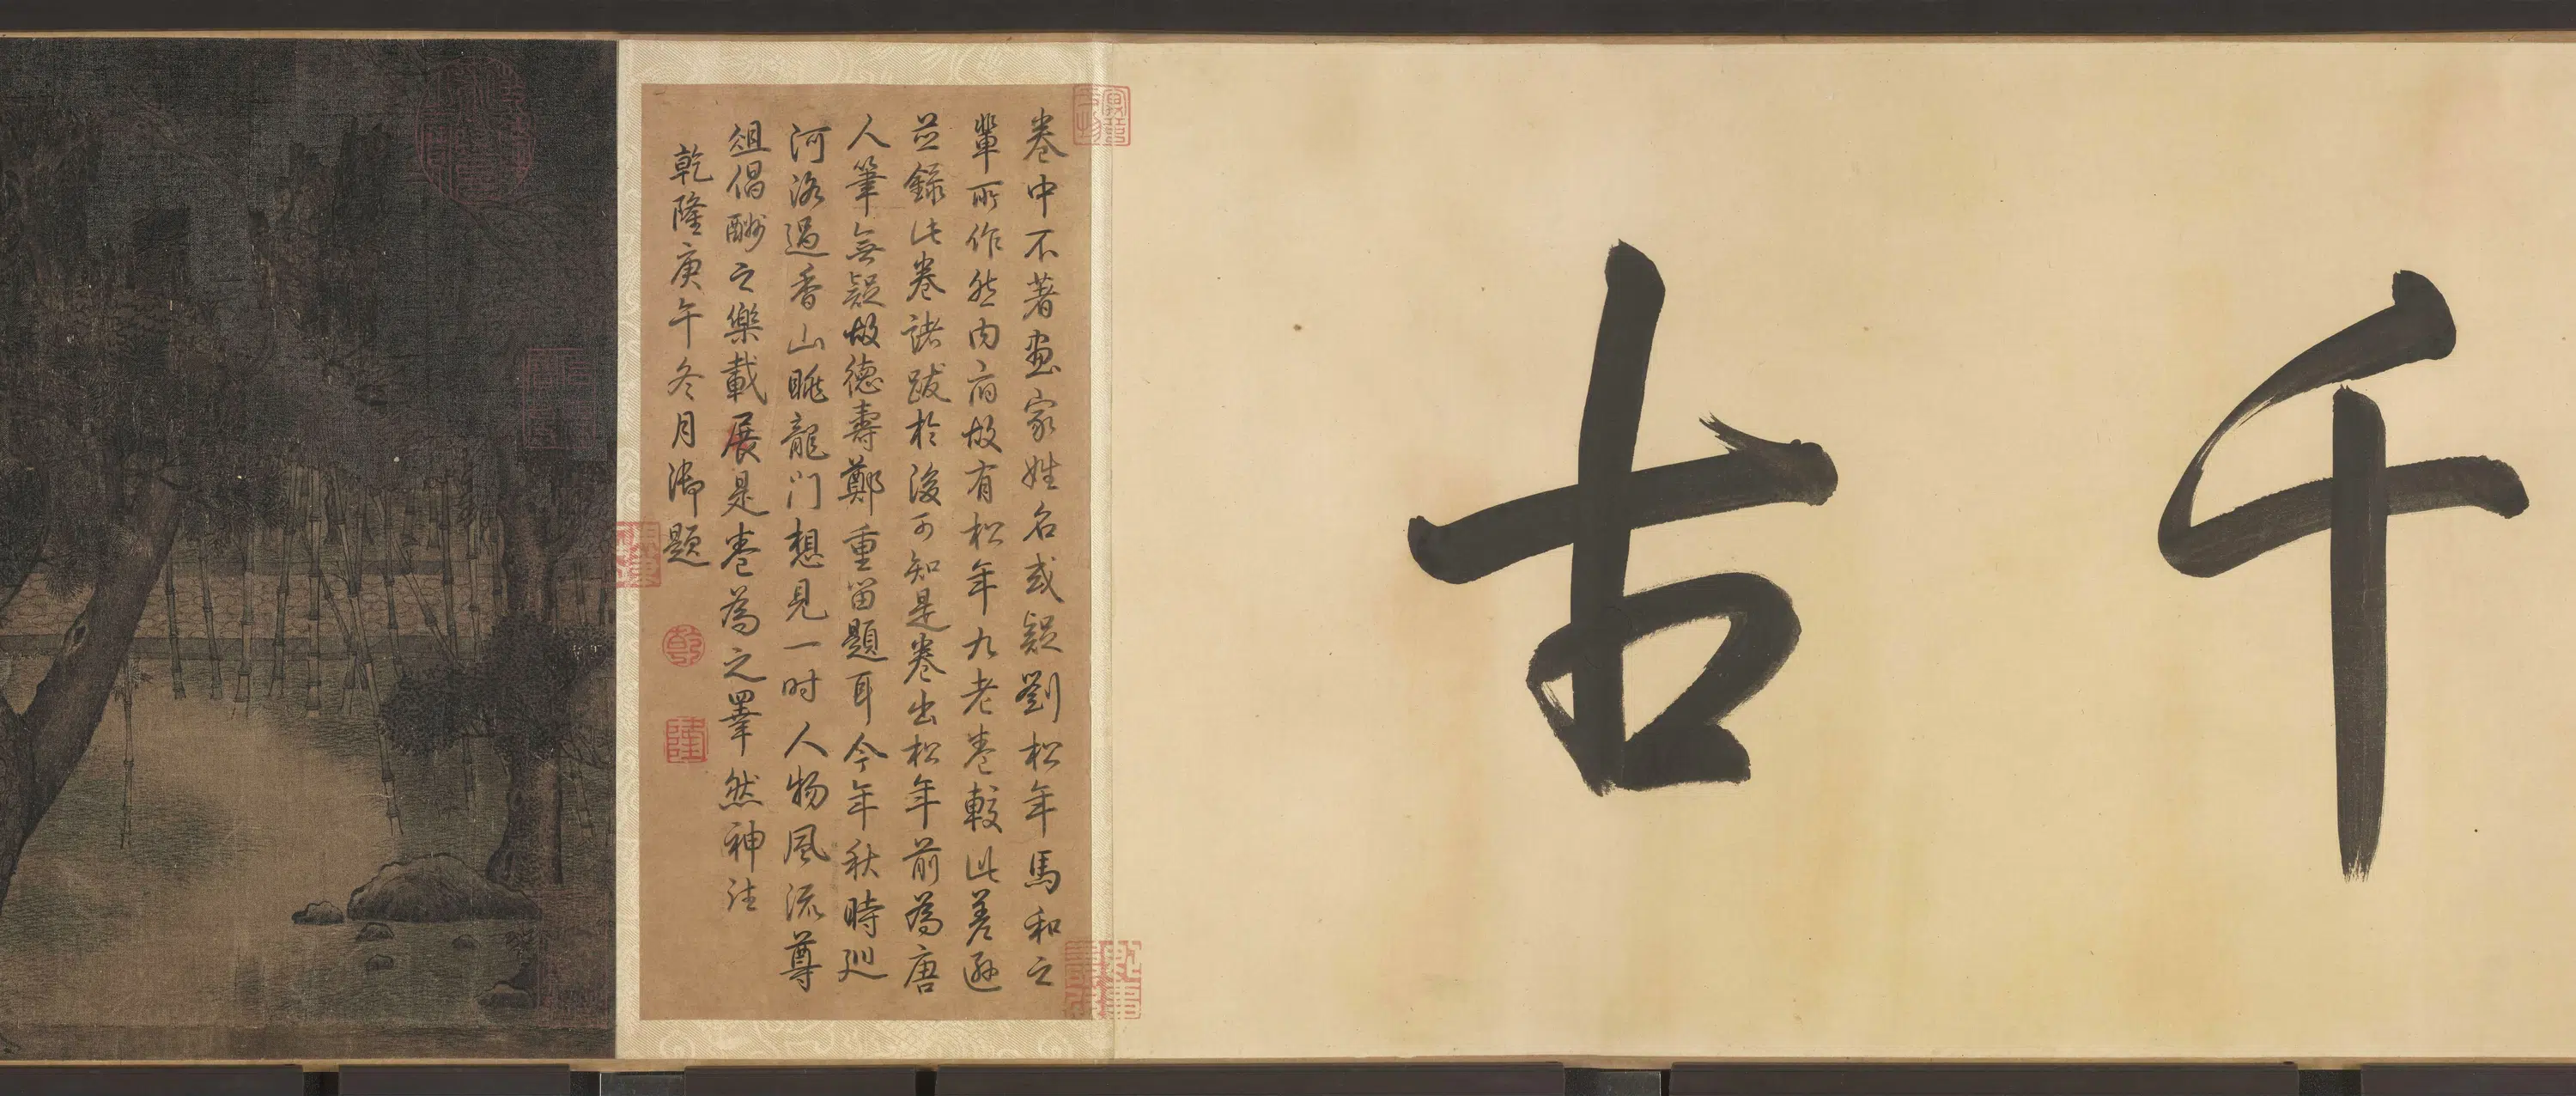 千古
卷中不著畫家姓名或疑劉松年馬和之
輩所作然內府故有松年九老卷較此差遜
並錄此卷諸跋於後可知是卷出松年前為唐
人筆無疑故德壽鄭重留題耳今年秋時巡
河洛過香山眺龍门想見一时人物風流尊
俎倡酬之樂載展是卷為之睪然神往
乾隆庚午冬月御題
乾
隆